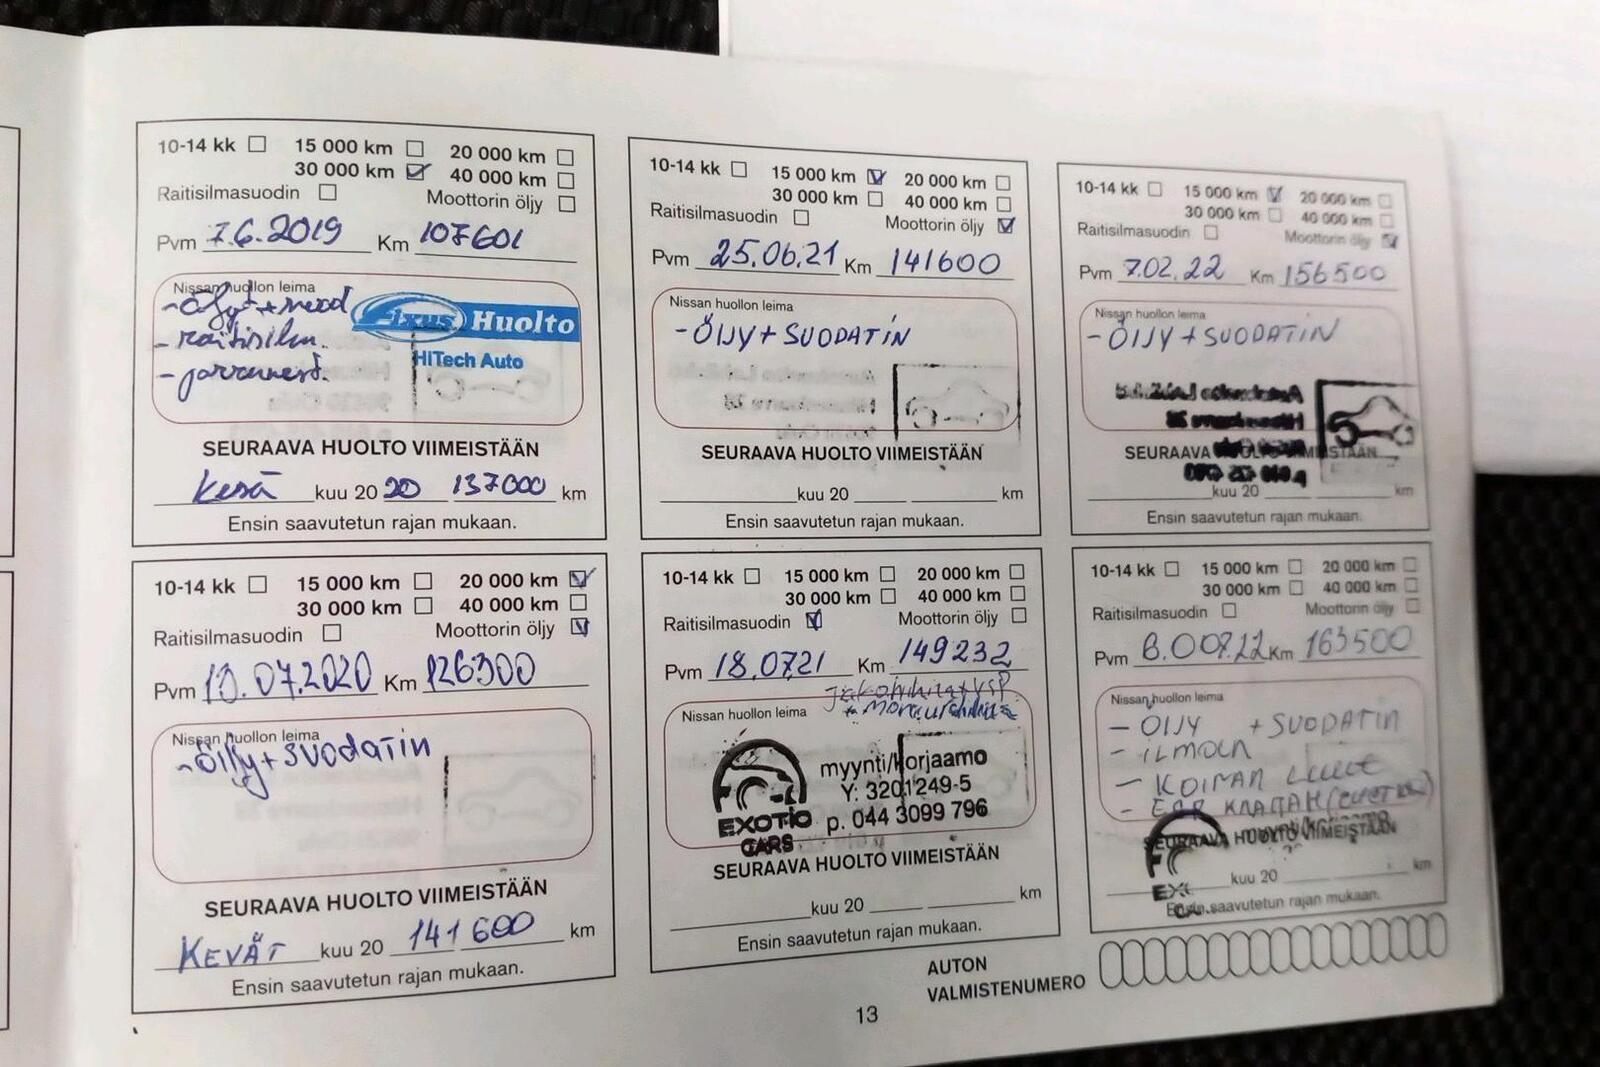 10-14 kk 15 000 km 20 000 km
30 000 km 40 000 km
Raitisilmasuodin Moottorin öljy
Pvm 7.6.2019 Km 107601
Nissan huollon leima
- raitisilm.
Huolto
HiTech Auto
SEURAAVA HUOLTO VIIMEISTÄÄN
Kesä kuu 20 20 137000 km
Ensin saavutetun rajan mukaan.
10-14 kk 15 000 km 20 000 km
30 000 km 40 000 km
Raitisilmasuodin Moottorin öljy
Pvm 25.06.21 Km 141600
Nissan huollon leima
- ÖIJY + SUODATIN
SEURAAVA HUOLTO VIIMEISTÄÄN
kuu 20 km
Ensin saavutetun rajan mukaan.
10-14 kk 15 000 km 20 000 km
30 000 km 40 000 km
Raitisilmasuodin Moottorin öljy
Pvm 7.02.22 Km 156500
Nissan huollon leima
- ÖIJY + SUODATIN
SEURAAVA HUOLTO VIIMEISTÄÄN
kuu 20 km
Ensin saavutetun rajan mukaan.
10-14 kk 15 000 km 20 000 km
30 000 km 40 000 km
Raitisilmasuodin Moottorin öljy
Pvm 10.07.2020 Km 126300
Nissan huollon leima
- Öiljy + suodatin
SEURAAVA HUOLTO VIIMEISTÄÄN
KEVÄT kuu 20 141600 km
Ensin saavutetun rajan mukaan.
10-14 kk 15 000 km 20 000 km
30 000 km 40 000 km
Raitisilmasuodin Moottorin öljy
Pvm 18.0721 Km 149232
Nissan huollon leima
myynti/korjaamo
Y: 3201249-5
p. 044 3099 796
EXOTIC
CARS
SEURAAVA HUOLTO VIIMEISTÄÄN
kuu 20 km
Ensin saavutetun rajan mukaan.
10-14 kk 15 000 km 20 000 km
30 000 km 40 000 km
Raitisilmasuodin Moottorin öljy
Pvm Km 163500
Nissan huollon leima
- ÖIJY + SUODATIN
SEURAAVA HUOLTO VIIMEISTÄÄN
kuu 20 km
Ensin saavutetun rajan mukaan.
AUTON
VALMISTENUMERO
13